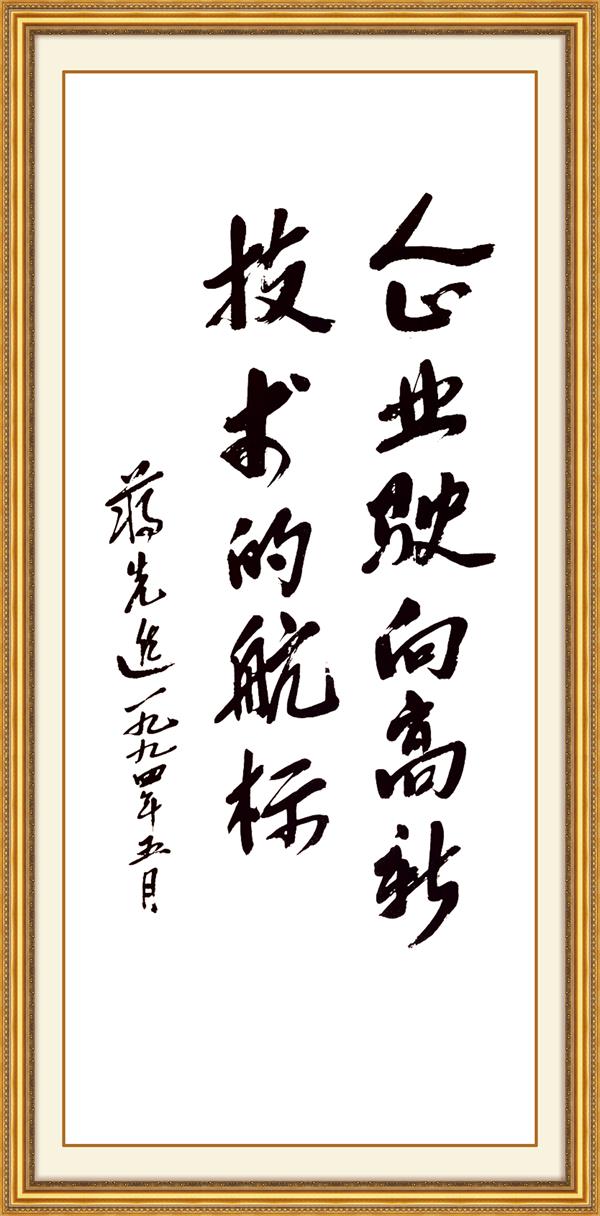 企业驶向高新
技术的航标
蒋先进一九九四年五月